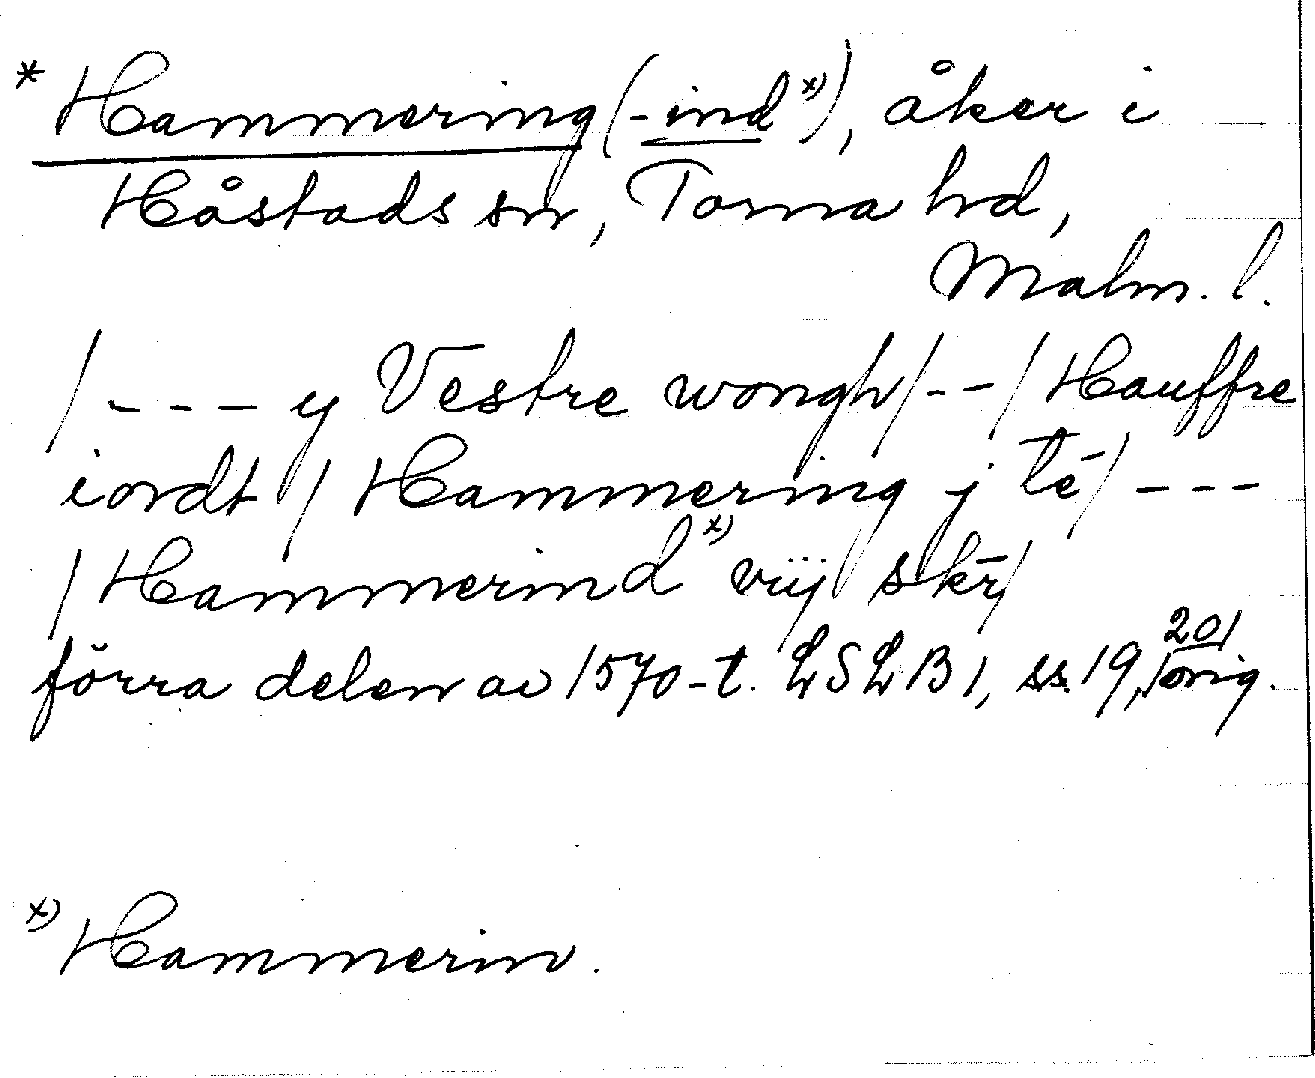 * Hammering (-ind x)), åker i
Håstads sn, Torna hd,
Malm. l.
/ - - - y Vestre wongh / - - / Hauffre
iordt / Hammering j tē / - - -
/ Hammerind x) viij skr̄ /
förra delen av 1570-t. LSLB 1, ss. 19, 201 orig.
x) Hammerin.